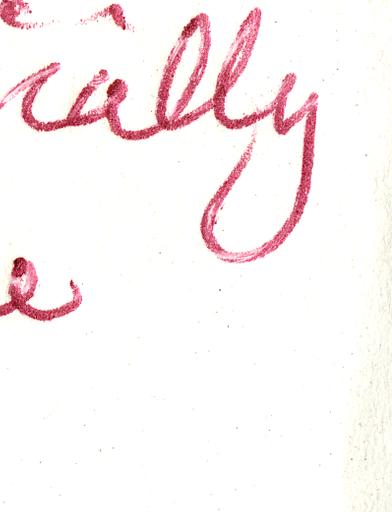 cally
e